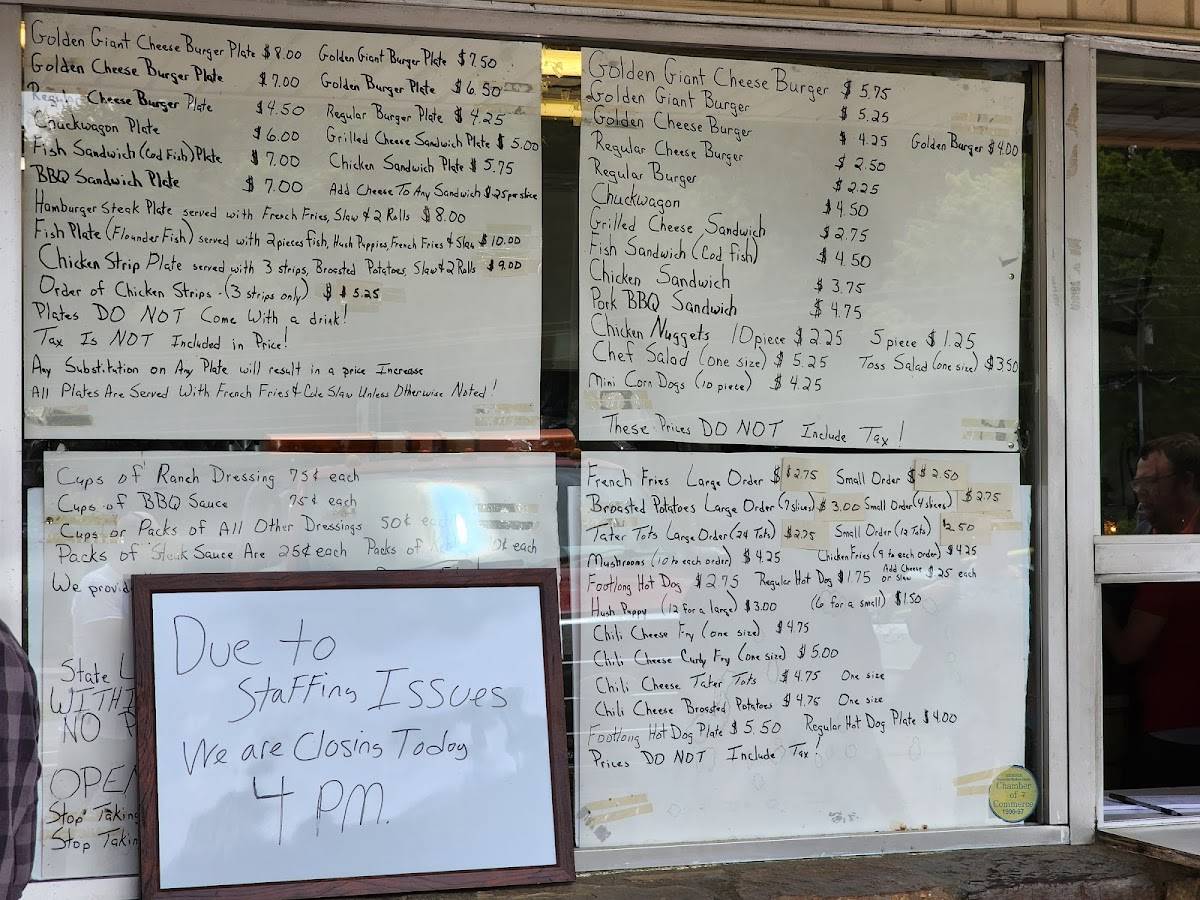 Golden Giant Cheese Burger Plate $8.00 Golden Giant Burger Plate $7.50
Golden Cheese Burger Plate $7.00 Golden Burger Plate $6.50
Regular Cheese Burger Plate $4.50 Regular Burger Plate $4.25
Chuckwagon Plate $6.00 Grilled Cheese Sandwich Plate $5.00
Fish Sandwich (Cod Fish) Plate $7.00 Chicken Sandwich Plate $5.75
BBQ Sandwich Plate $7.00 Add Cheese To Any Sandwich $.25 per slice
Hamburger Steak Plate served with French Fries, Slaw & 2 Rolls $8.00
Fish Plate (Flounder Fish) served with 2 pieces fish, Hush Puppies, French Fries & Slaw $10.00
Chicken Strip Plate served with 3 strips, Broasted Potatoes, Slaw & 2 Rolls $9.00
Order of Chicken Strips - (3 strips only) $ $5.25
Plates DO NOT Come With a drink!
Tax Is NOT Included in Price!
Any Substitution on Any Plate will result in a price Increase
All Plates Are Served With French Fries & Cole Slaw Unless Otherwise Noted!
Golden Giant Cheese Burger $5.75
Golden Giant Burger $5.25
Golden Cheese Burger $4.25 Golden Burger $4.00
Regular Cheese Burger $2.50
Regular Burger $2.25
Chuckwagon $4.50
Grilled Cheese Sandwich $2.75
Fish Sandwich (Cod fish) $4.50
Chicken Sandwich $3.75
Pork BBQ Sandwich $4.75
Chicken Nuggets 10 piece $2.25 5 piece $1.25
Chef Salad (one size) $5.25 Toss Salad (one size) $3.50
Mini Corn Dogs (10 piece) $4.25
These Prices DO NOT Include Tax!
Cups of Ranch Dressing 75¢ each
Cups of BBQ Sauce 75¢ each
Cups or Packs of All Other Dressings 50¢
Packs of Steak Sauce Are 25¢ each Packs of each
We provid
State
WITHI
NO P
OPEN
Stop Taking
Stop Takin
Due to
Staffing Issues
We are Closing Today
4 PM.
French Fries Large Order $ $2.75 Small Order $ $2.50
Broasted Potatoes Large Order (7 slices) $3.00 Small Order (4 slices) $2.75
Tater Tots Large Order (24 Tots) $2.75 Small Order (12 Tots) $2.50
Mushrooms (10 to each order) $4.25 Chicken Fries (9 to each order) $4.25
Footlong Hot Dog $2.75 Regular Hot Dog $1.75 Add Cheese or Slaw $.25 each
Hush Puppy (12 for a large) $3.00 (6 for a small) $1.50
Chili Cheese Fry (one size) $4.75
Chili Cheese Curly Fry (one size) $5.00
Chili Cheese Tater Tots $4.75 One size
Chili Cheese Broasted Potatoes $4.75 One size
Footlong Hot Dog Plate $5.50 Regular Hot Dog Plate $4.00
Prices DO NOT Include Tax!
Chamber
of
Commerce